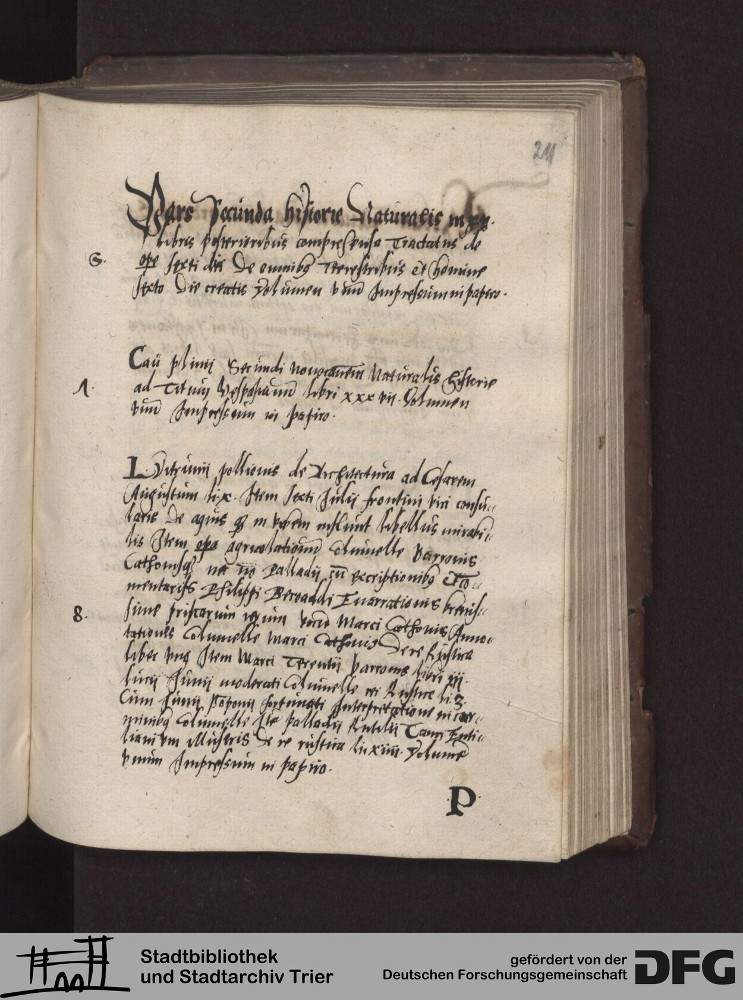 211
Pars Secunda historie Naturalis in
libris posterioribus comprehensa Tractatus de
S.
ope sexti diei De omnibus Terrestribus et homine
sexto die creatis Volumen unum Impressum in papiro.
Caii plinii Secundi Naturalis historie
1.
ad Titum Vespasianum libri xxxvii. Volumen
unum Impressum in papiro.
L. Vitruvii pollionis de Architectura ad Cesarem
Augustum li. x. Item Sexti Julii frontini viri consu
laris De aquis que in urbem influunt libellus mirabi
lis Item opa agricolationum Columelle Varronis
Cathonisque Palladii cum excriptionibus et Com
mentariis Philippi Beroaldi Enarrationis brevis
8.
sime priscarum vocum Marci Cathonis Anno
tationes Columelle Marci Cathonis De re Rustica
liber unus Item Marci Terentii Varronis libri iii
lucii Junii moderati Columelle rei Rustice li.
Cum Junii Pomponii fortunati Interpretatione in car
minibus Columelle Ite palladii Rutilii Tauri Emi
liani De re rustica li xiiii. Volume
unum Impressum in papiro.
P
Stadtbibliothek
und Stadtarchiv Trier
gefördert von der
Deutschen Forschungsgemeinschaft
DFG